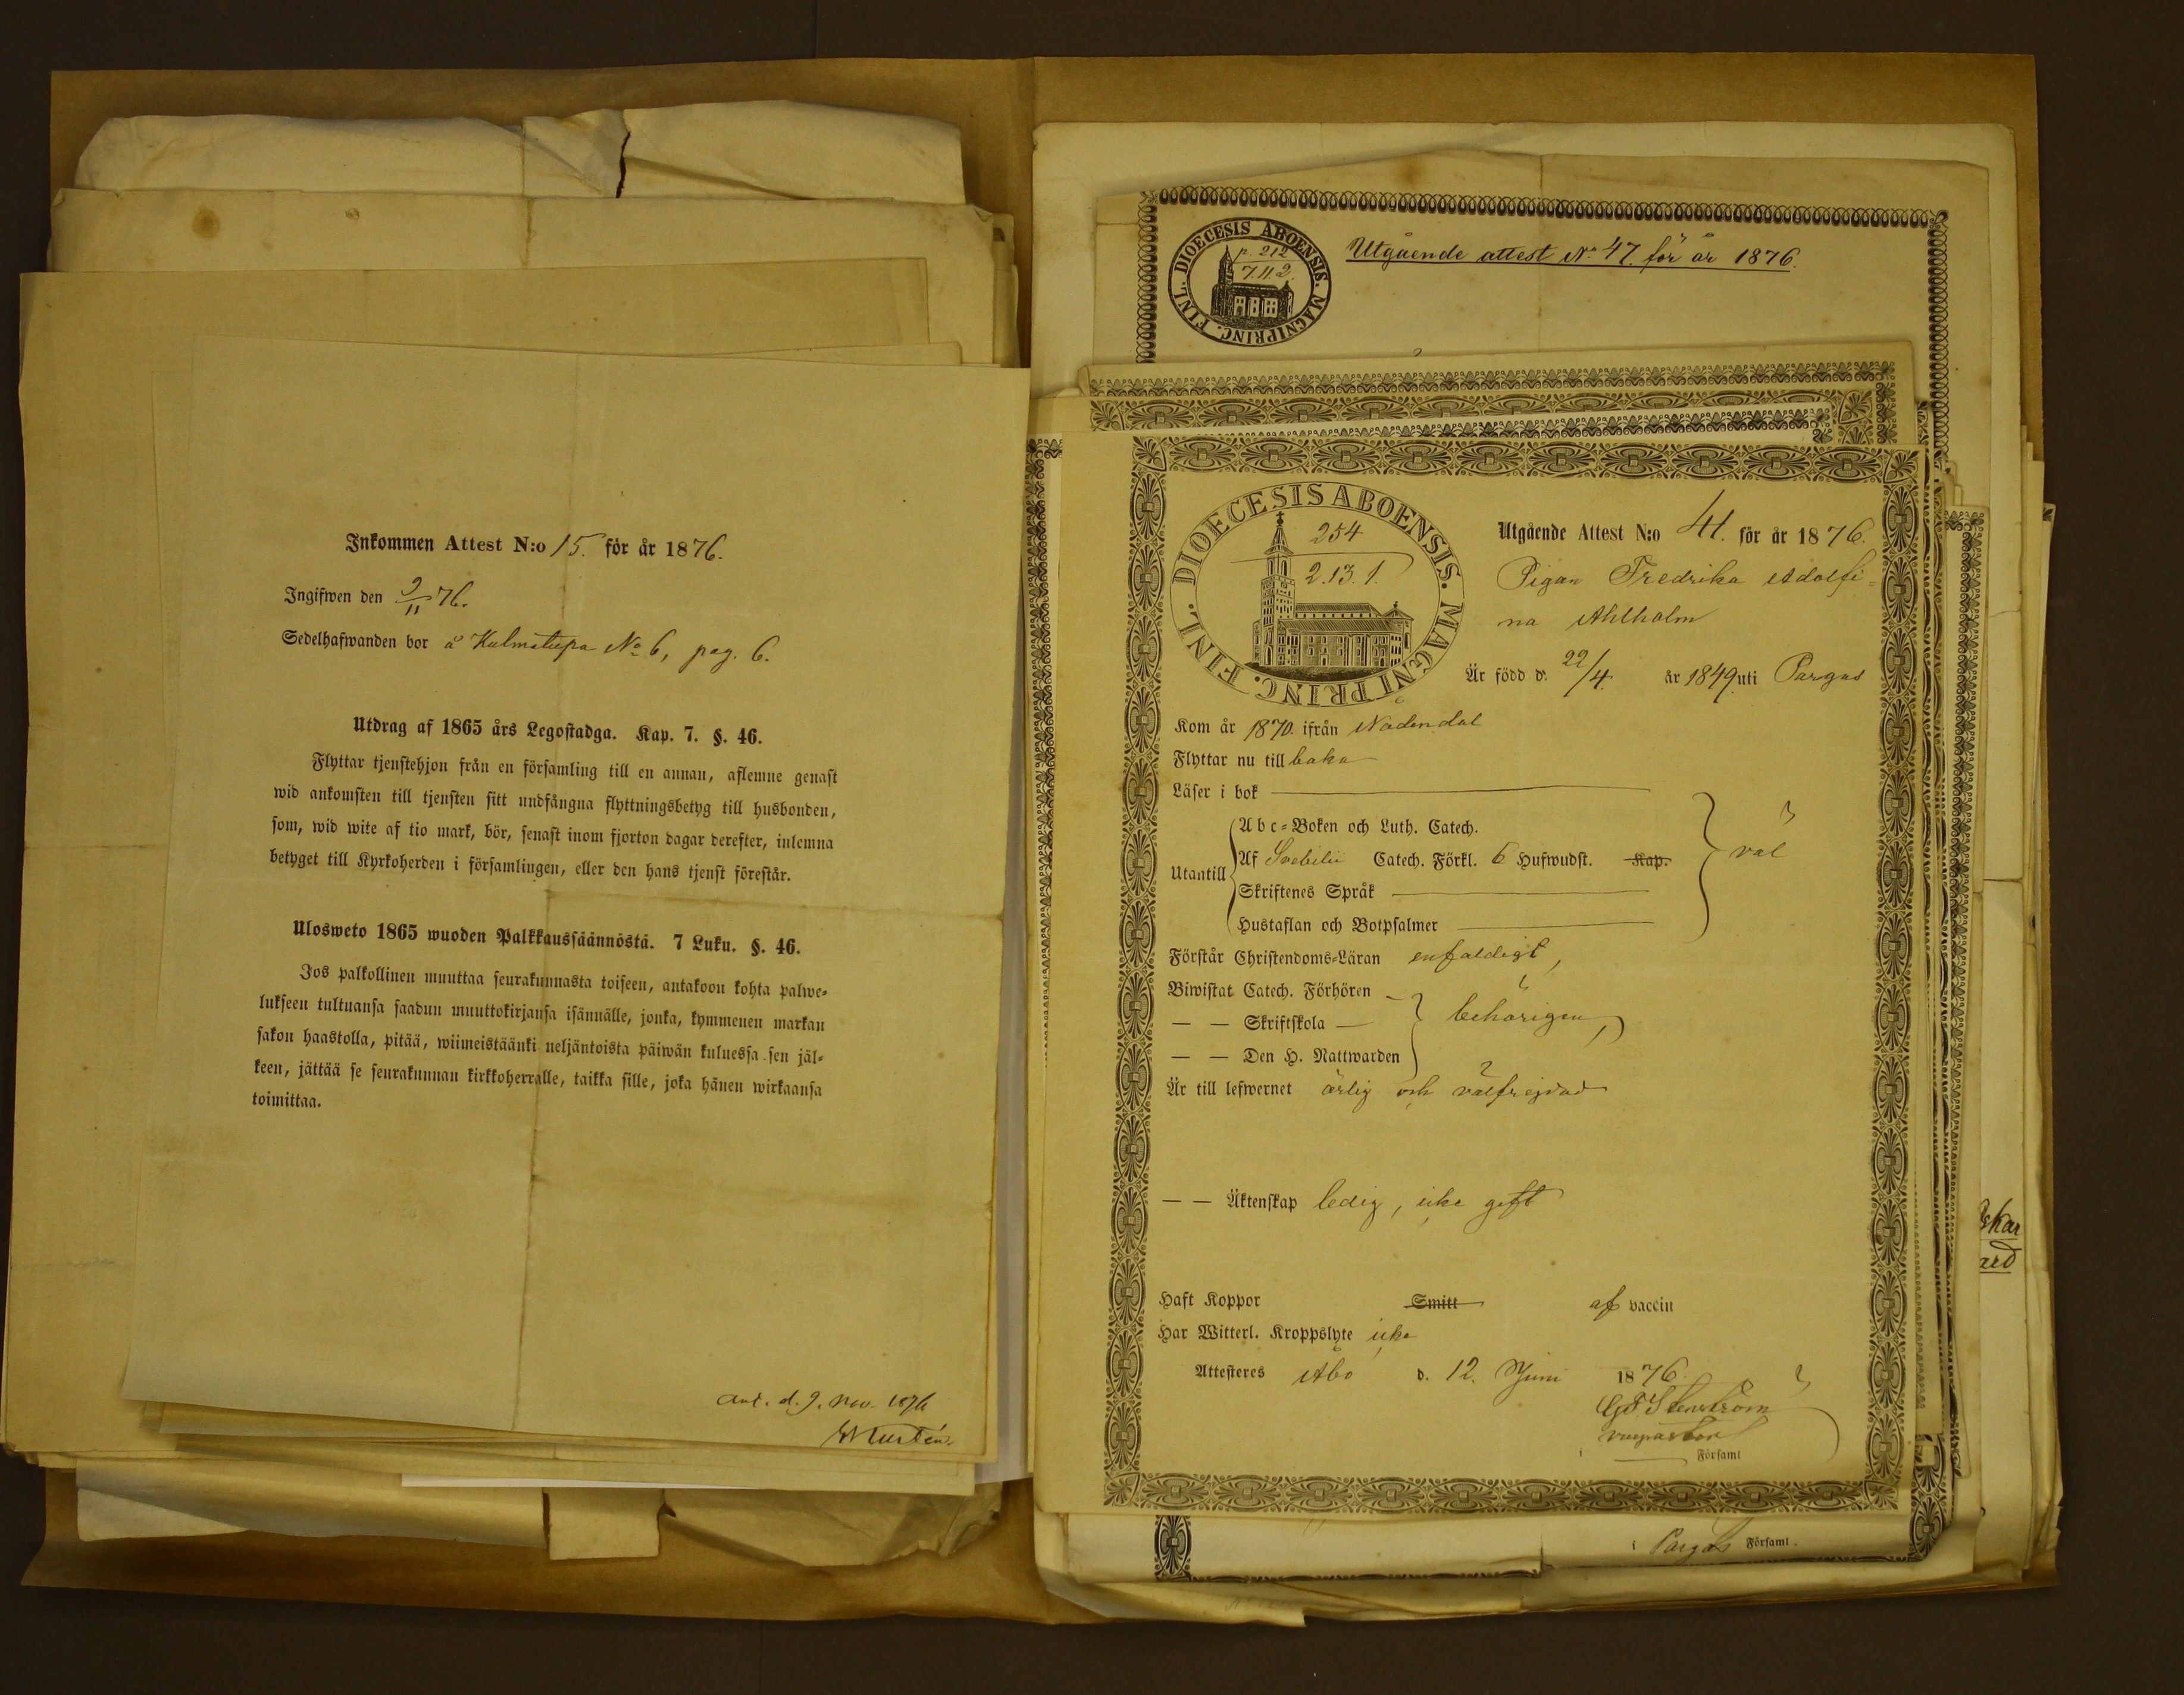 Inkommen Attest N:o 15. för år 1876.
Ingifwen den 9/11 76.
Sedelhafwanden bor å Kulmatupa No 6, pag. 6.
Utdrag af 1865 års Legostadga. Kap. 7. §. 46.
Flyttar tjenstehjon från en församling till en annan, aflemne genast
wid ankomsten till tjensten sitt undfångna flyttningsbetyg till husbonden,
som, wid wite af tio mark, bör, senast inom fjorton dagar derefter, inlemna
betyget till Kyrkoherden i församlingen, eller den hans tjenst förestår.
Ulosweto 1865 wuoden Palkkaussäännöstä. 7 Luku. §. 46.
Jos palkollinen muuttaa seurakunnasta toiseen, antakoon kohta palwe=
lukseen tultuansa saadun muuttokirjansa isännälle, jonka, kymmenen markan
sakon haastolla, pitää, wiimeistäänki neljäntoista päiwän kuluessa sen jäl=
keen, jättää se seurakunnan kirkkoherralle, taikka sille, joka hänen wirkaansa
toimittaa.
ant. d. 9. Nov. 1876
DIOECESIS ABOENSIS. MAGNI PRINC. FINL.
p. 212
7.11.2.
Utgående attest No 47. för år 1876.
DIOECESIS ABOENSIS. MAGNI PRINC. FINL.
254
2.13.1.
Utgående Attest N:o 41. för år 1876.
Pigan Fredrika Adolfi=
na Ahlholm
Är född d. 22/4. år 1849. uti Pargas
Kom år 1870. ifrån Nådendal
Flyttar nu till baka
Läser i bok
Utantill
Abc=Boken och Luth. Catech.
Af Svebilii Catech. Förkl. 6 Hufwudst. Kap.
Skriftenes Språk
Hustaflan och Botpsalmer
väl
Förstår Christendoms=Läran enfaldigt,
Biwistat Catech. Förhören
— — Skriftskola —
— — Den H. Nattwarden
behörigen,
Är till lefwernet ärlig och välfrejdad
— — Äktenskap ledig, icke gift
Haft Koppor Smitt af vaccin
Har Witterl. Kroppslyte icke
Attesteres Åbo d. 12. Juni 1876.
G F Stenström
vicepastor
i Församl
i Pargas Församl.
skar
ard